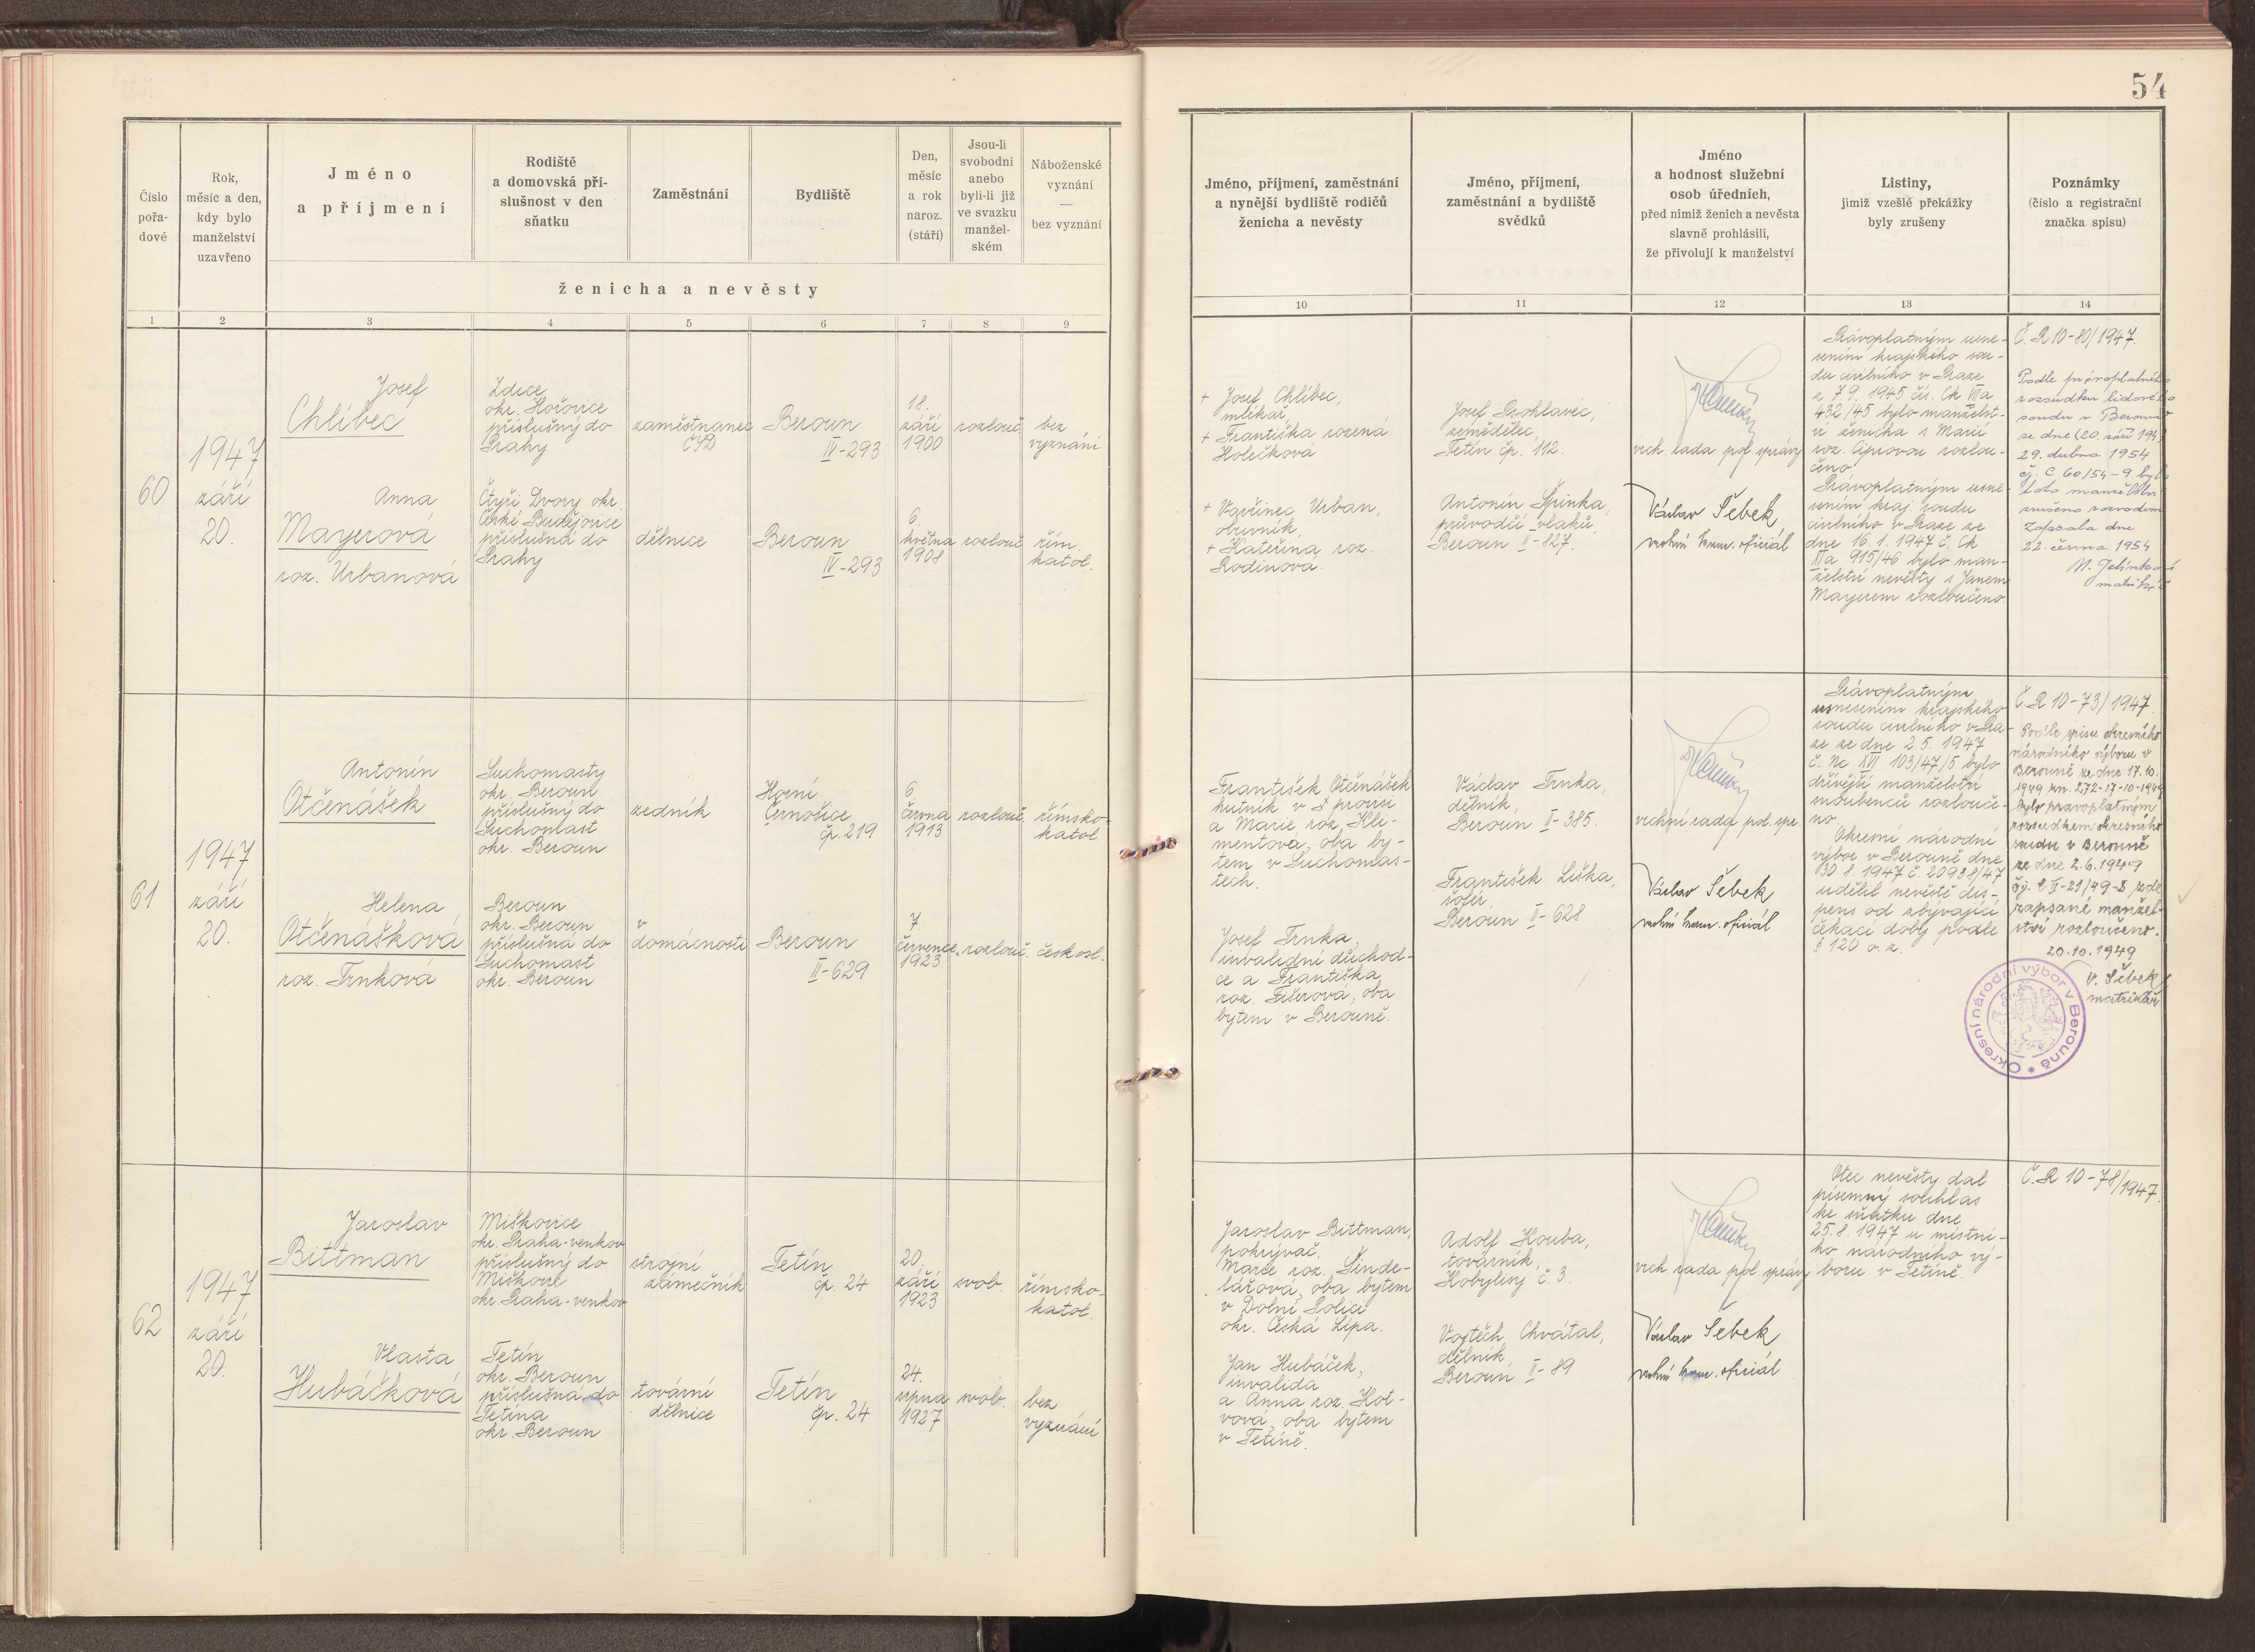 54
Číslo
pořa-
dové
Rok,
měsíc a den,
kdy bylo
manželství
uzavřeno
Jméno
a příjmení
Rodiště
a domovská pří-
slušnost v den
sňatku
Zaměstnání
Bydliště
Den,
měsíc
a rok
naroz.
(stáří)
Jsou-li
svobodni
anebo
byli-li již
ve svazku
manžel-
ském
Náboženské
vyznání
—
bez vyznání
ženicha a nevěsty
1 2 3 4 5 6 7 8 9
Jméno, příjmení, zaměstnání
a nynější bydliště rodičů
ženicha a nevěsty
Jméno, příjmení,
zaměstnání a bydliště
svědků
Jméno
a hodnost služební
osob úředních,
před nimiž ženich a nevěsta
slavně prohlásili,
že přivolují k manželství
Listiny,
jimiž vzešlé překážky
byly zrušeny
Poznámky
(číslo a registrační
značka spisu)
10 11 12 13 14
60
1947
září
20.
Josef
Chlíbec
Zdice
okr. Hořovice
příslušný do
Prahy
zaměstnanec
ČSD
Beroun
IV-293
18.
září
1900
rozlouč.
bez
vyznání
Anna
Mayerová
roz. Urbanová
Čtyři Dvory okr.
České Budějovice
příslušná do
Prahy
dělnice
Beroun
IV-293
6.
května
1908
rozlouč.
řím.
katol.
+ Josef Chlíbec,
mlékař,
+ Františka rozená
Holečková
+ Vavřinec Urban,
obuvník,
+ Kateřina roz.
Rodinová.
Josef Prohlavec,
zemědělec,
Tetín čp. 112.
Antonín Špinka,
průvodčí vlaků,
Beroun II-827.
vrch. rada pol. správy
Václav Šebek,
vrchní kanc. oficiál
Právoplatným usne-
sením krajského sou-
du civilního v Praze
z 7.9. 1945 čís. Ck VIIa
432/45 bylo manželst-
ví ženicha s Marií
roz. Ciprovou rozlou-
čeno.
Právoplatným usne-
sením kraj. soudu
civilního v Praze ze
dne 16.1. 1947 č. Ck
XIIa 915/46 bylo man-
želství nevěsty s Janem
Mayerem rozloučeno.
Č. R 10-80/1947.
Podle právoplatného
rozsudku lidového
soudu v Berouně
ze dne (20. září 194
29. dubna 1954
čj. C 60/54-9 bylo
toto manželství
zrušeno rozvodem
Zapsala dne
22. června 1954
M. Jelínková
61
1947
září
20.
Antonín
Otčenášek
Suchomasty
okr. Beroun
příslušný do
Suchomast
okr. Beroun
zedník
Horní
Černošice
čp. 219
6.
června
1913
rozlouč.
římsko-
katol.
Helena
Otčenášková
roz. Trnková
Beroun
okr. Beroun
příslušná do
Suchomast
okr. Beroun
v
domácnosti
Beroun
II-629
7.
července
1923
rozlouč.
českosl.
František Otčenášek
hutník v
a Marie roz. Kli-
mentová, oba by-
tem v Suchomas-
tech.
Josef Trnka,
invalidní důchod-
ce a Františka
roz. Fišerová, oba
bytem v Berouně.
Václav Trnka,
dělník,
Beroun II-385.
František Liška,
šofér,
Beroun II-628
vrchní rada pol. spr.
Václav Šebek
vrchní kanc. oficiál
Právoplatným
usnesením krajského
soudu civilního v Pra-
ze ze dne 2.5. 1947
č. Nc XVI 103/47/5 bylo
dřívější manželství
snoubenců rozlouče-
no.
Okresní národní
výbor v Berouně dne
30.8. 1947 č. 20938/47
udělil nevěstě dis-
pens od zbývající
čekací doby podle
§ 120 o. z.
Č. R 10-73/1947.
Podle spisu okresního
národního výboru v
Berouně ze dne 17.10.
1949 zn. 272-17-10-1949
bylo pravoplatným
rozsudkem okresního
soudu v Berouně
ze dne 2.6.1949
čj. C II-21/49-8 zde
zapsané manžel-
ství rozloučeno.
20.10.1949
V. Šebek
matrikář
Okresní národní výbor v Berouně
62
1947
září
20.
Jaroslav
Bittman
Miškovice
okr. Praha-venkov
příslušný do
Miškovic
okr. Praha-venkov
strojní
zámečník
Tetín
čp. 24
20.
září
1923
svob.
římsko-
katol.
Vlasta
Hubáčková
Tetín
okr. Beroun
příslušná do
Tetína
okr. Beroun
tovární
dělnice
Tetín
čp. 24
24.
srpna
1927
svob.
bez
vyznání
Jaroslav Bittman,
pokrývač,
Marie roz. Šinde-
lářová, oba bytem
v Dolní Polici
okr. Česká Lípa.
Jan Hubáček,
invalida
a Anna roz. Hot-
vová, oba bytem
v Tetíně.
Adolf Houba,
továrník,
Kobylisy č. 3.
Vojtěch Chvátal,
dělník,
Beroun II-89
vrch. rada pol. správy
Václav Šebek
vrchní kanc. oficiál
Otec nevěsty dal
písemný souhlas
ke sňatku dne
25.8. 1947 u místní-
ho národního vý-
boru v Tetíně.
Č. R 10-78/1947.